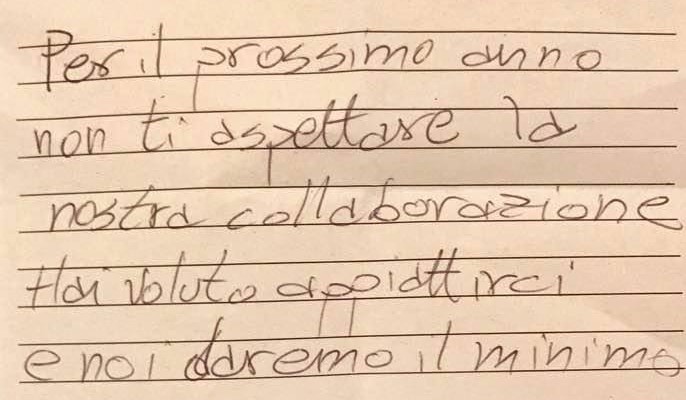 Per il prossimo anno
non ti aspettare la
nostra collaborazione
Hai voluto appiattirci
e noi daremo il minimo